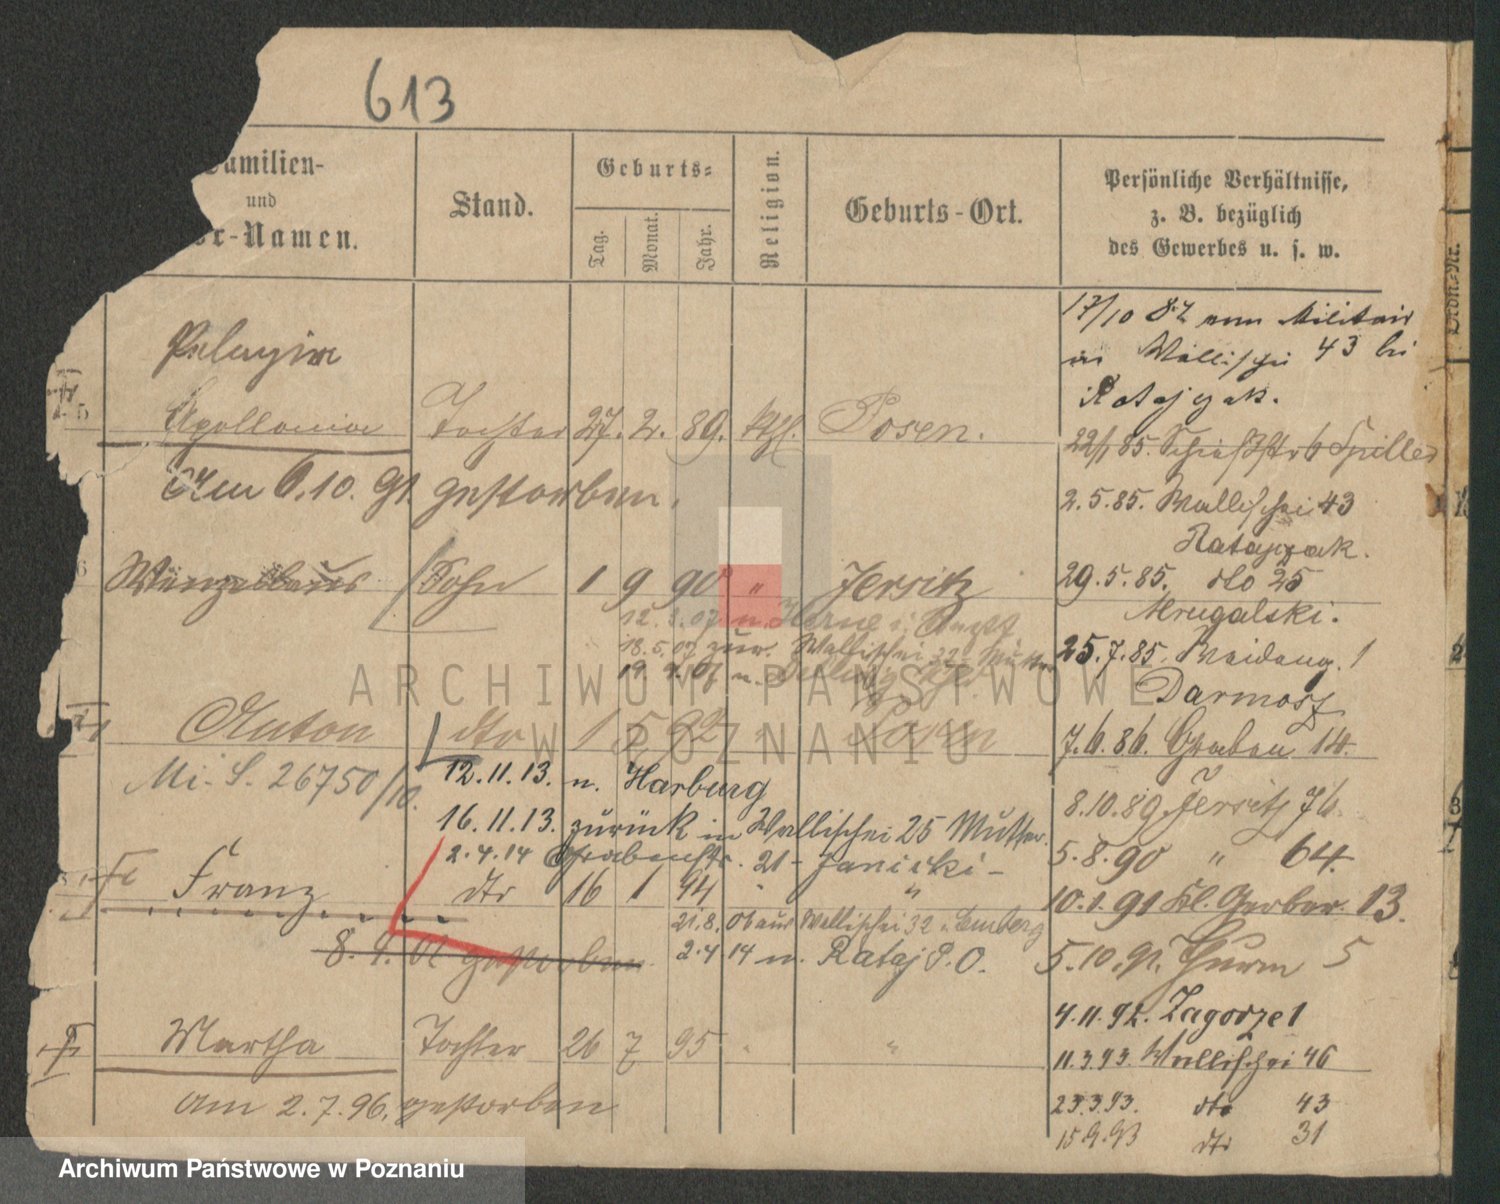 613
Familien-
und
Vor-Namen.
Stand.
Geburts-
Tag.
Monat.
Jahr.
Religion.
Geburts-Ort.
Persönliche Verhältnisse,
z. B. bezüglich
des Gewerbes u. s. w.
Ordn.-Nr.
Pelagia
Apollonia Tochter 27. 2. 89. kth. Posen.
Am 6.10.91. gestorben.
Wenzeslaus Sohn 1 9 90 " Jersitz
12. 3. 07 n. Herne i.
18.5.07 zur. Wallischei 32 Mutter
19. 9. 07 n.
Anton dto 1 5 92 " Posen
Mi. S. 26750/10.
12.11.13. n. Harburg
16.11.13. zurück in Wallischei 25 Mutter.
2.4.14 Grabenstr. 21 - Janicki -
Franz dto 16 1 94 " "
21.8.06 aus Wallischei 32
8. 4. 01 gestorben.
2.4.14 n. Rataj P.O.
Martha Tochter 26 7 95 " "
am 2.7.96. gestorben
17/10 82 vom Militair
in Wallischei 43 bei
Ratajczak.
22/1 85. Schießstr 6 Spiller
2.5.85. Wallischei 43
Ratajczak.
29.5.85. dto 25
Mrugalski.
25.7.85. Waideng. 1
Darmosz
7.6.86. Graben 14.
8.10.89 Jersitz 76.
5.8.90 " 64.
10.1.91 Kl. Gerber. 13.
5.10.91. Thurm 5
4.11.92. Zagorze 1
11.3.93. Wallischei 46
23.3.93. dto 43
15.9.93 dto 31
ARCHIWUM PAŃSTWOWE
W POZNANIU
Archiwum Państwowe w Poznaniu